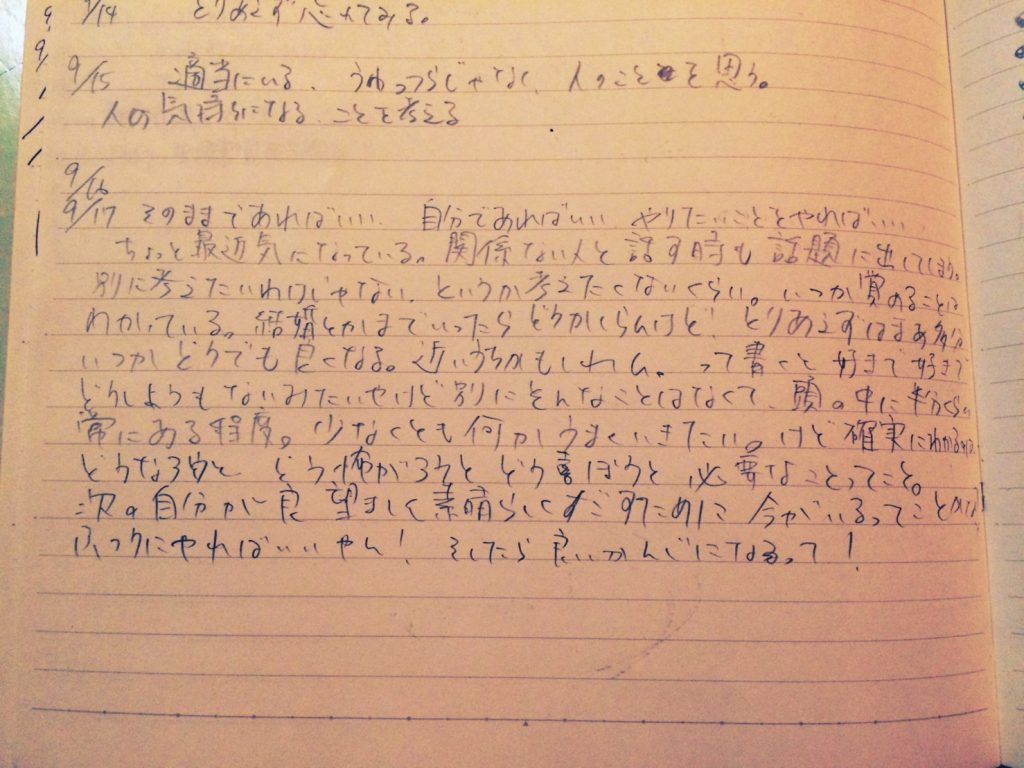 9/14 とりあえず忘れてみる。
9/15 適当にいる、うわっつらじゃなく、人のことを思う。
人の気持ちになる、ことを考える
9/16
9/17 そのままであればいい、自分であればいい、やりたいことをやればいい、
ちょっと最近気になっている。関係ない人と話す時も話題に出してしまう。
別に考えたいわけじゃない、というか考えたくないくらい。いつか覚めることは
わかっている。結婚とかまでいったらどうかしらんけど、とりあえずはまあ多分
いつかどうでも良くなる。近いうちかもしれん。って書くと好きで好きで
どうしようもないみたいやけど別にそんなことはなくて、頭の中に半分くらい
常にある程度。少なくとも何かうまくいきたい。けど確実にわかるのは
どうなろうと どう怖がろうと どう喜ぼうと 必要なことってこと。
次の自分が良 望ましく素晴らしくすごすために今がいるってこと
ふつうにやればいいやん! そしたら良いかんじになるって!